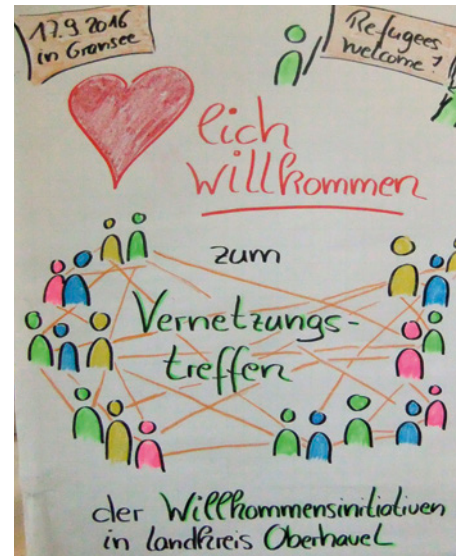 17.9.2016
in Gransee
Refugees
welcome!
lich
willkommen
zum
Vernetzungs-
treffen
der Willkommensinitiativen
in Landkreis Oberhavel